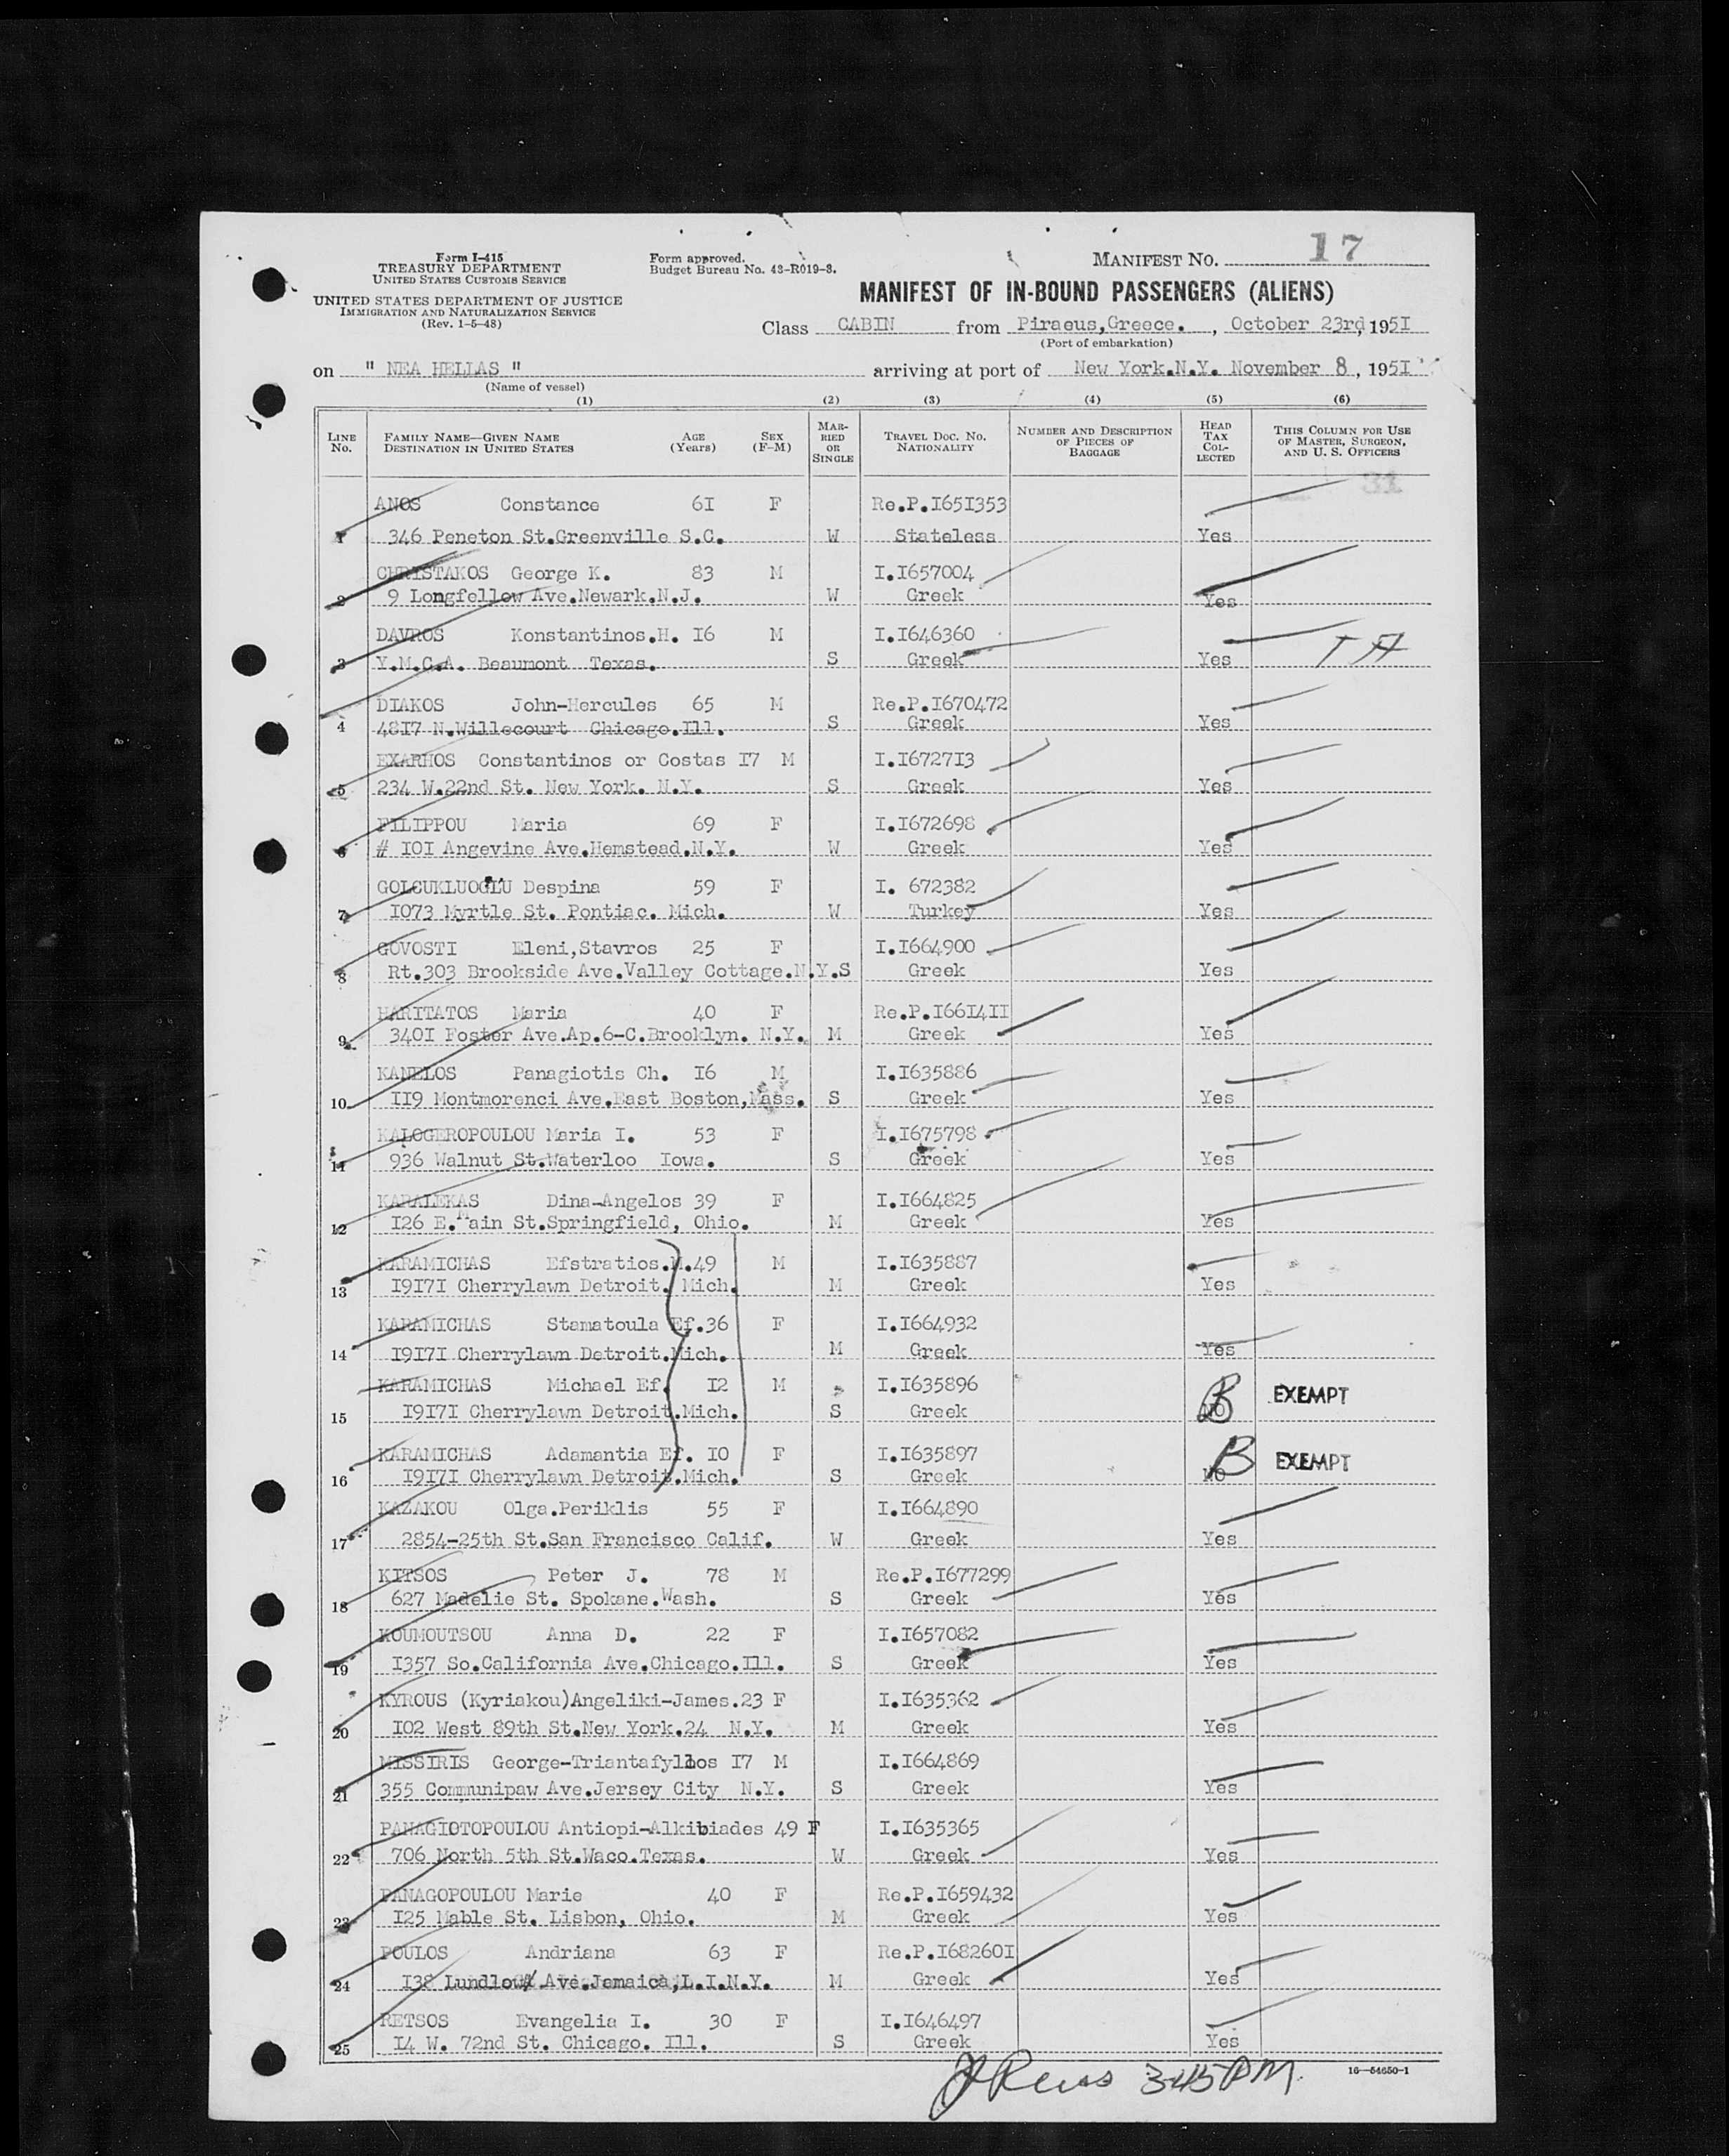 Form I-415
TREASURY DEPARTMENT
UNITED STATES CUSTOMS SERVICE
UNITED STATES DEPARTMENT OF JUSTICE
IMMIGRATION AND NATURALIZATION SERVICE
(Rev. 1-5-48)
Form approved.
Budget Bureau No. 43-R019-3.
MANIFEST NO. 17
MANIFEST OF IN-BOUND PASSENGERS (ALIENS)
Class CABIN from Piraeus,Greece. , October 23rd, 1951
(Port of embarkation)
on " NEA HELLAS " arriving at port of New York.N.Y. November 8, 1951
(Name of vessel)
(1) (2) (3) (4) (5) (6)
LINE No. FAMILY NAME—GIVEN NAME DESTINATION IN UNITED STATES AGE (Years) SEX (F-M) MARRIED OR SINGLE TRAVEL DOC. NO. NATIONALITY NUMBER AND DESCRIPTION OF PIECES OF BAGGAGE HEAD TAX COLLECTED THIS COLUMN FOR USE OF MASTER, SURGEON, AND U. S. OFFICERS
31
ANOS Constance 6I F Re.P.I65I353
1 346 Peneton St.Greenville S.C. W Stateless Yes
CHRISTAKOS George K. 83 M I.I657004
2 9 Longfellow Ave.Newark.N.J. W Greek Yes
DAVROS Konstantinos.H. I6 M I.I646360
3 Y.M.C.A. Beaumont Texas. S Greek Yes
DIAKOS John-Hercules 65 M Re.P.I670472
4 48I7 N.Willecourt Chicago.Ill. S Greek Yes
EXARHOS Constantinos or Costas I7 M I.I6727I3
5 234 W.22nd St. New York. N.Y. S Greek Yes
FILIPPOU Maria 69 F I.I672698
6 # IOI Angevine Ave.Hemstead.N.Y. W Greek Yes
GOLCUKLUOGLU Despina 59 F I. 672382
7 I073 Myrtle St. Pontiac. Mich. W Turkey Yes
GOVOSTI Eleni,Stavros 25 F I.I664900
8 Rt.303 Brookside Ave.Valley Cottage.N.Y.S Greek Yes
HARITATOS Maria 40 F Re.P.I66I4II
9 340I Foster Ave.Ap.6-C.Brooklyn. N.Y. M Greek Yes
KANELOS Panagiotis Ch. I6 M I.I635886
10 II9 Montmorenci Ave.East Boston,Mass. S Greek Yes
KALOGEROPOULOU Maria I. 53 F I.I675798
11 936 Walnut St.Waterloo Iowa. S Greek Yes
KARALEKAS Dina-Angelos 39 F I.I664825
12 I26 E.Main St.Springfield, Ohio. M Greek Yes
KARAMICHAS Efstratios.M.49 M I.I635887
13 I9I7I Cherrylawn Detroit. Mich. M Greek Yes
KARAMICHAS Stamatoula Ef.36 F I.I664932
14 I9I7I Cherrylawn Detroit.Mich. M Greek Yes
KARAMICHAS Michael Ef. I2 M I.I635896
15 I9I7I Cherrylawn Detroit.Mich. S Greek NO EXEMPT
KARAMICHAS Adamantia Ef. I0 F I.I635897
16 I9I7I Cherrylawn Detroit.Mich. S Greek NO EXEMPT
KAZAKOU Olga.Periklis 55 F I.I664890
17 2854-25th St.San Francisco Calif. W Greek Yes
KITSOS Peter J. 78 M Re.P.I677299
18 627 Madelie St. Spokane.Wash. S Greek Yes
KOUMOUTSOU Anna D. 22 F I.I657082
19 I357 So.California Ave.Chicago.Ill. S Greek Yes
KYROUS (Kyriakou)Angeliki-James.23 F I.I635362
20 I02 West 89th St.New York.24 N.Y. M Greek Yes
MISSIRIS George-Triantafyllos I7 M I.I664869
21 355 Communipaw Ave.Jersey City N.Y. S Greek Yes
PANAGIOTOPOULOU Antiopi-Alkibiades 49 F I.I635365
22 706 North 5th St.Waco.Texas. W Greek Yes
PANAGOPOULOU Marie 40 F Re.P.I659432
23 I25 Mable St. Lisbon, Ohio. M Greek Yes
POULOS Andriana 63 F Re.P.I68260I
24 I38 Lundlow Ave.Jamaica,L.I.N.Y. M Greek Yes
RETSOS Evangelia I. 30 F I.I646497
25 I4 W. 72nd St. Chicago. Ill. S Greek Yes
3:45 PM.
16—54650-1